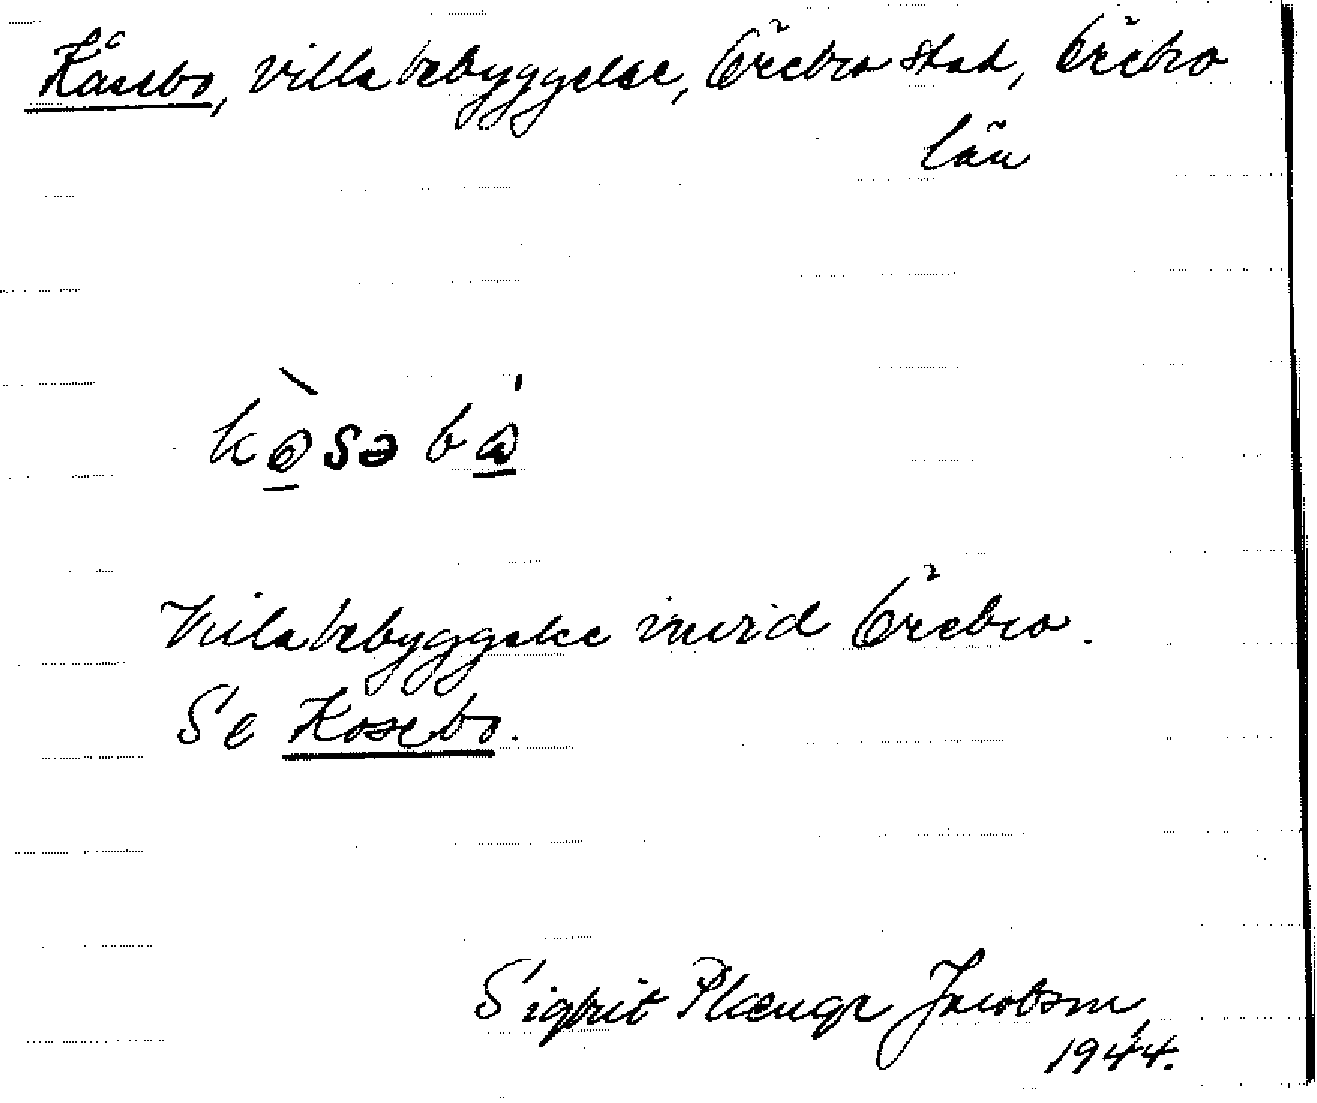 Kåsebo, villabebyggelse, Örebro stad, Örebro
län
kòsəbó
Villabebyggelse invid Örebro.
Se Kosebo.
Sigbrit Plænge Jacobson,
1944.